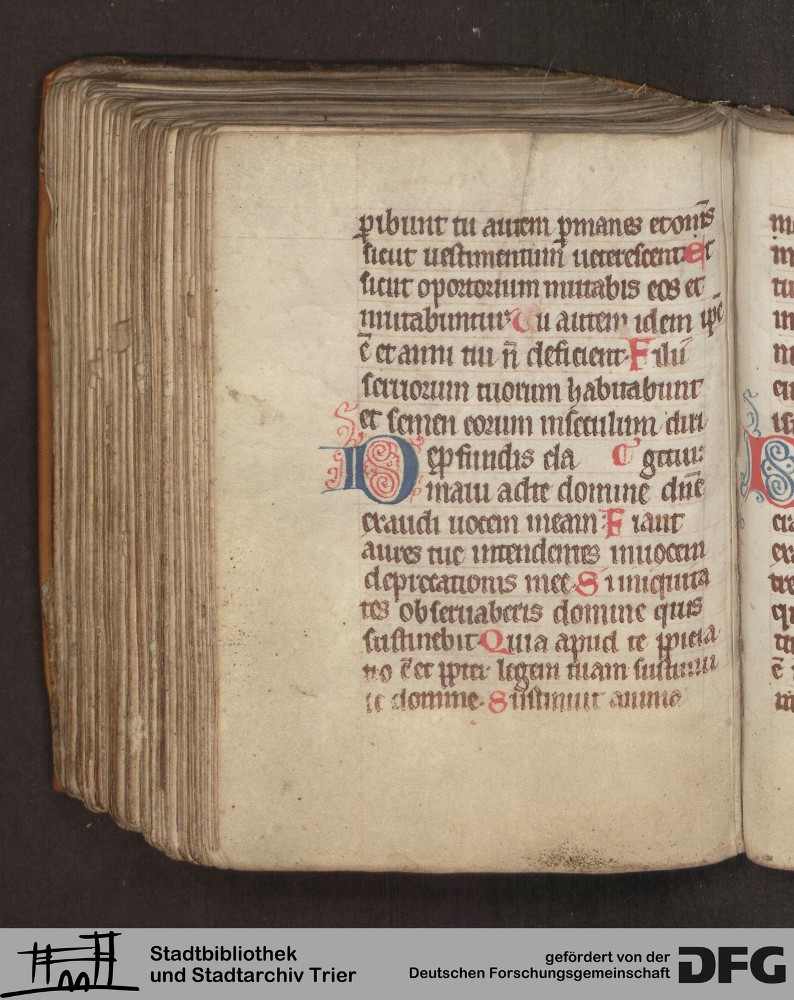 ꝑibunt tu autem ꝑmanes et om̅s
sicut uestimentum ueterescent Et
sicut oportorium mutabis eos et
mutabuntur Tu autem idem ip̅e
e̅ et anni tui n̅ deficient Filii
seruorum tuorum habitabunt
et semen eorum inseculum diri
getur
De ꝓfundis cla
maui adte domine dn̅e
exaudi uocem meam Fiant
aures tue intendentes inuocem
deprecationis mee Si iniquita
tes obseruaberis domine quis
sustinebit Quia apud te ꝓpicia
tio e̅ et ꝓpter legem tuam sustinui
te domine Sustinuit anima
Stadtbibliothek
und Stadtarchiv Trier
gefördert von der
Deutschen Forschungsgemeinschaft
DFG